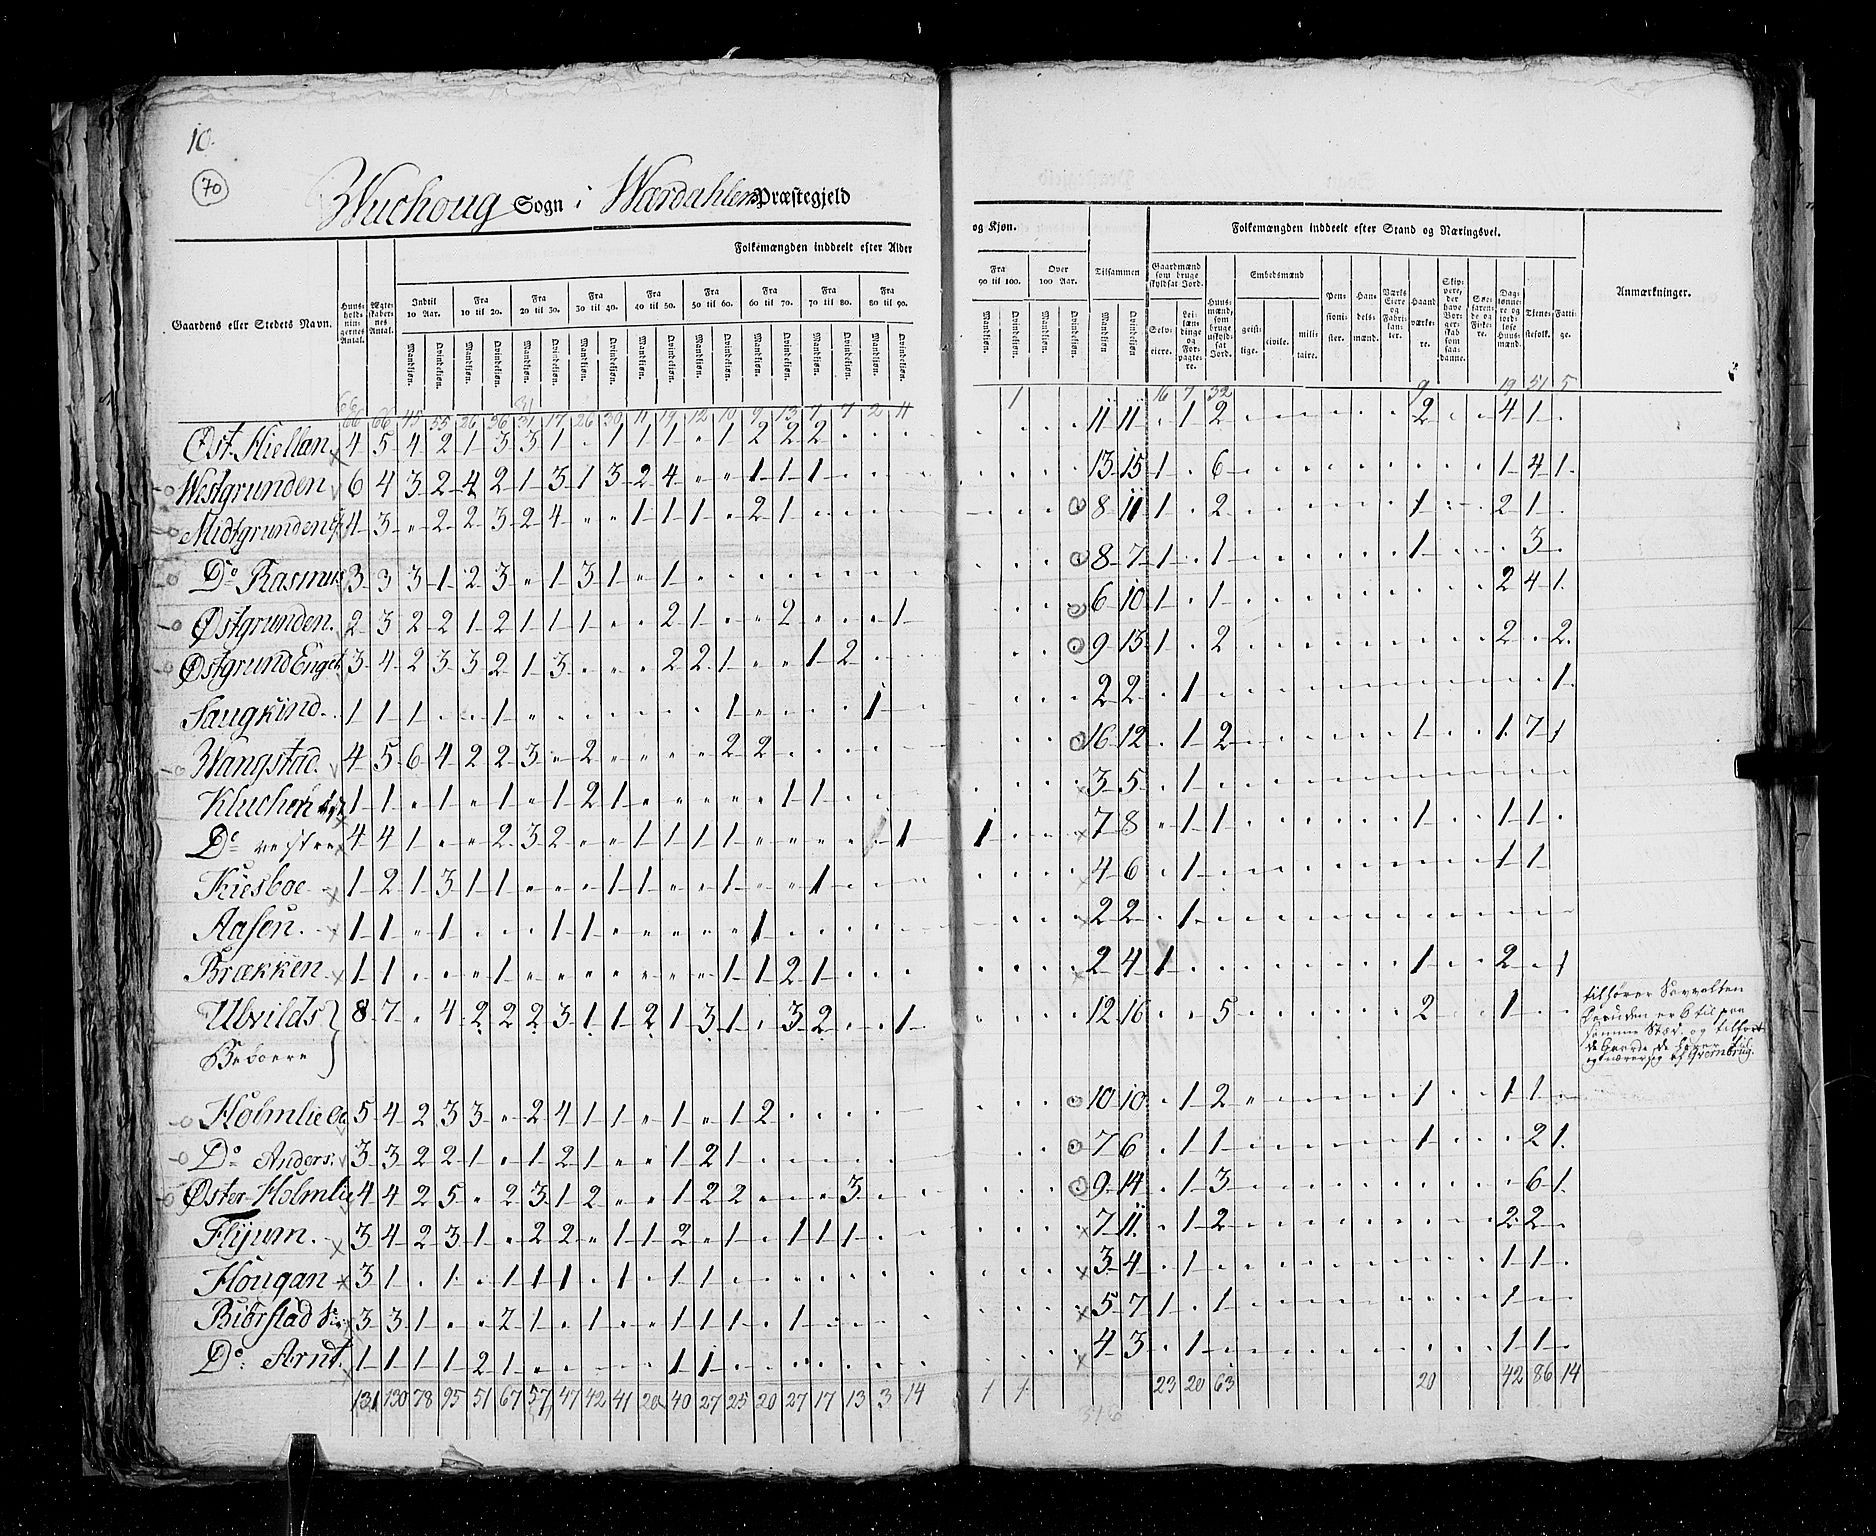 10.
70
Wuchoug Sogn i Wærdahlens Præstegjeld
og Kjøn.
Folkemængden inddeelt efter Stand og Næringsvei.
Folkemængden inddeelt efter Alder
Gaardens eller Stedets Navn.
Huus-holdnin-gernes Antal.
Ægte-skabernes Antal.
Indtil 10 Aar.
Fra 10 til 20.
Fra 20 til 30.
Fra 30 til 40.
Fra 40 til 50.
Fra 50 til 60.
Fra 60 til 70.
Fra 70 til 80.
Fra 80 til 90.
Fra 90 til 100.
Over 100 Aar.
Tilsammen
Mandkjøn. Qvindekjøn.
Gaardmænd som bruge skyldsat Jord.
Selv-eiere.
Lei-læn-dinge og For-pagte-re.
Huus-mænd, som bruge uskyld-sat Jord.
Embedsmænd
geist-lige.
civile.
mili-taire.
Pen-sioni-ster.
Han-dels-mænd.
Værks Eiere og Fabri-kan-ter.
Haand-værke-re.
Skip-pere, der have Bor-ger-skab som saa-danne.
Søe-farende og Fiske-re.
Dag-lønne-re og jord-løse Huus-mænd.
Tjene-stefolk.
Fatti-ge.
Anmærkninger.
66 66 45 55 26 36 31 17 26 30 11 19 12 10 9 13 7 7 2 11 1 16 7 32 9 19 51 5
Øst. Hiellan 4 5 4 2 1 3 3 1 . 1 1 1 . 1 2 2 2 11 11 . 1 2 2 4 1
Westgrunden 6 4 3 2 4 2 1 3 1 3 2 4 . . 1 1 1 13 15 1 . 6 1 4 1
Midtgrunden 4 3 . 2 2 3 2 4 . . 1 1 1 . 2 1 8 11 1 . 2 1 2 1
Do Rasmus 3 3 3 1 2 3 . 1 3 1 . 1 8 7 1 . 1 1 . 3
Østgrunden. 2 3 2 2 1 2 1 1 1 . . 2 1 . . 2 . . . 1 6 10 1 . 1 2 4 1
Østgrund Enget 3 4 2 3 3 2 1 3 . . . 2 2 1 . . 1 2 9 13 1 . 2 2 . 2
Saugkind. 1 1 1 . . 1 . . . . . . . 1 . . . . 1 2 2 . 1 1
Wangstad. 4 5 6 4 2 2 3 . 2 . . . . 2 2 16 12 . 1 2 1 1 7 1
1 1 . 1 . 1 . 1 2 1 . . . . . 1 1 3 5 . 1
Do vestre 4 4 1 . . 2 3 2 . . 1 1 1 1 . . . . . 1 1 7 8 . 1 1 1 1 1
Kiesboe 1 2 1 3 1 1 . . . 1 1 . . 1 . . 1 4 6 . 1 1 1
Aasen. 1 1 . 1 . . . 1 1 . . . . . 1 2 2 . 1
Brækken 1 1 . . . 1 . . . . . . . 1 1 2 1 2 4 1 1 2 . 1
Ulvilds 8 7 . 4 2 2 2 3 1 1 2 1 3 1 . 3 2 . . 1 12 16 . . 5 2 1
Beboere
tilhører
Holmlie 5 4 2 3 3 . 2 4 1 1 . 1 . 1 2 10 10 . 1 2 1 1 1
Do Anders. 3 3 2 2 1 . 1 2 1 . . 1 2 1 7 6 . 1 1 1 . 2 1
Øster Holmlie 4 4 2 5 . 2 3 1 2 . . 1 2 2 . . . 3 9 14 . 1 3 6 1
Flyum. 3 4 2 3 1 . 2 2 . 1 1 2 . 1 . 1 1 1 7 11 . 1 2 2 2
Hougan 3 1 . 1 . 1 1 1 . 1 . 1 1 3 4 . 1 1 1
3 3 1 . . 2 1 . 1 . . 1 1 1 . 1 5 7 1 . 1 1
Do: Arnt. 1 1 1 1 2 1 . . . . . 1 1 4 3 . 1 1 1
131 130 78 95 51 67 57 47 42 41 20 40 27 25 20 27 17 13 3 14 1 1 23 20 63 20 42 86 14
316